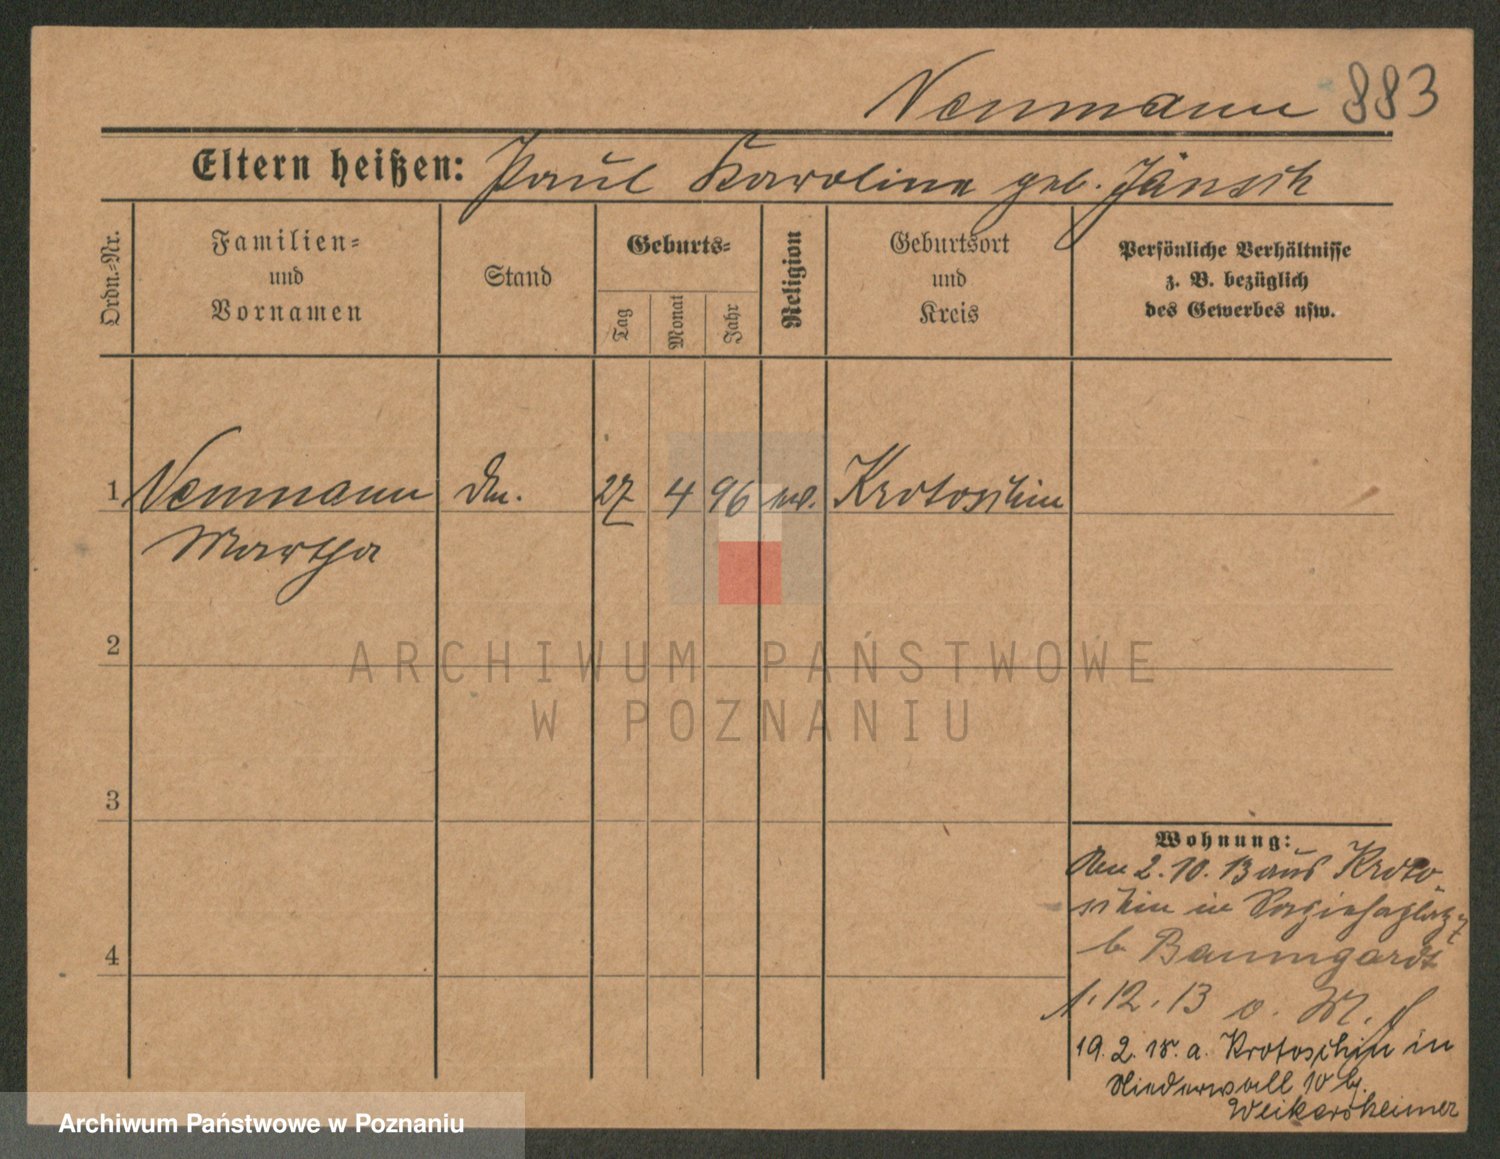 Neumann 883
Eltern heißen: Paul Karoline geb. Jänsch
Ordn.-Nr.
Familien-
und
Vornamen
Stand
Geburts-
Tag
Monat
Jahr
Religion
Geburtsort
und
Kreis
Persönliche Verhältnisse
z. B. bezüglich
des Gewerbes usw.
1 Neumann 27 4 96 Krotoschin
Martha
2
ARCHIWUM PAŃSTWOWE
W POZNANIU
3
4
Wohnung:
2.10.13 aus Kroto-
schin in
b. Baumgardt
1.12.13 o. M.
19.2.15. a. Krotoschin in
Niederwall 10 b.
Weikersheimer
Archiwum Państwowe w Poznaniu